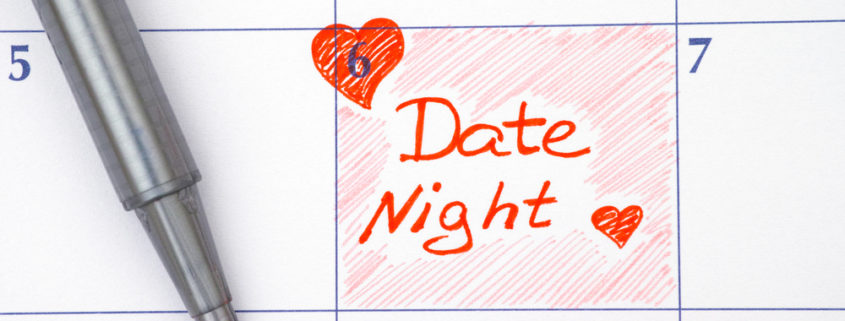 5
6
7
Date
Night